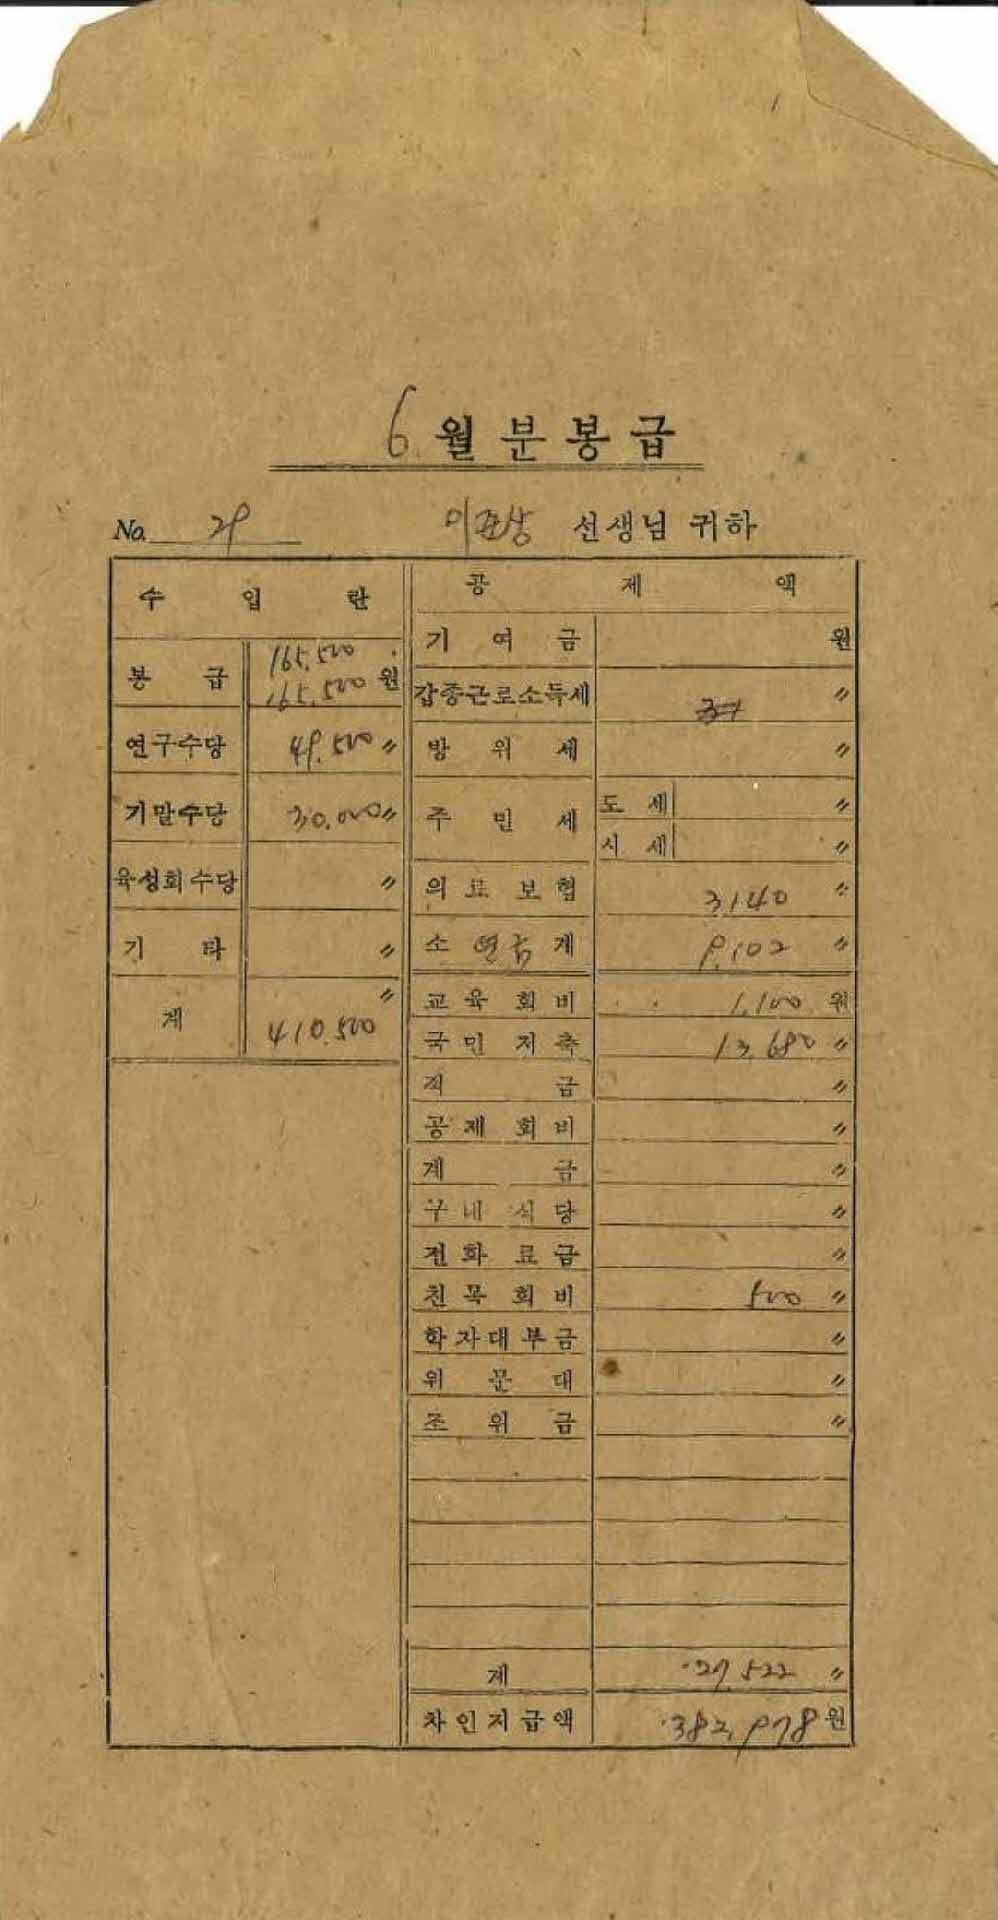 6월분봉급
No. 29 이준상 선생님 귀하
수입란
봉급 165,500 165,500 원
연구수당 49,500 〃
기말수당 30,000 〃
육성회수당 〃
기타 〃
계 410,500 〃
공제액
기여금 원
갑종근로소득세 〃
방위세 〃
주민세 도세 〃
시세 〃
의료보험 3,140 〃
소 연금 계 9,102 〃
교육회비 1,100 원
국민저축 13,680 〃
적금 〃
공제회비 〃
계금 〃
구내식당 〃
전화료금 〃
친목회비 500 〃
학자대부금 〃
위문대 〃
조위금 〃
계 27,522 〃
차인지급액 382,978 원